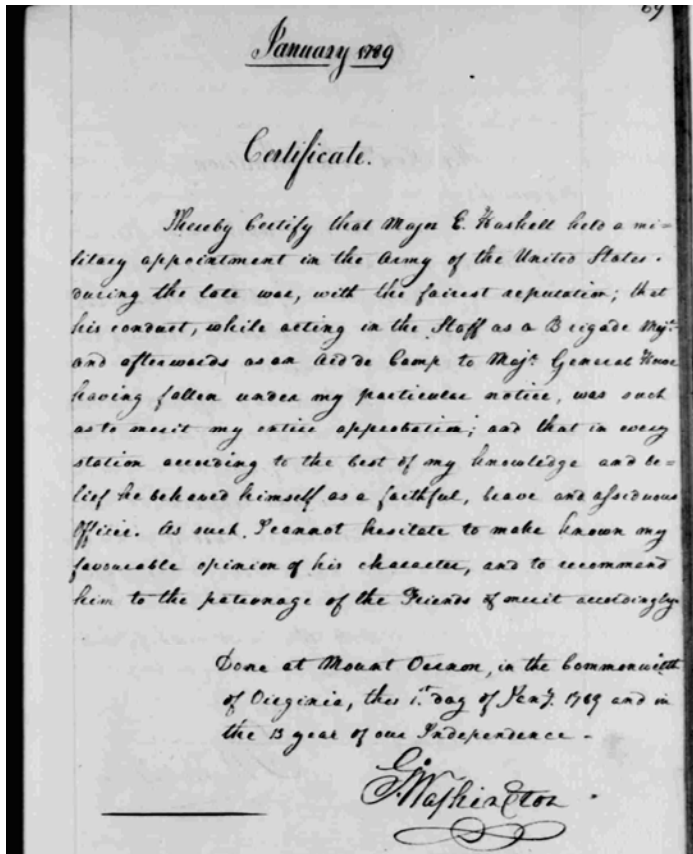 69
January 1789
Certificate.
I hereby Certify that Major E. Haskell held a mi=
litary appointment in the Army of the United States.
during the late war, with the fairest reputation; that
his conduct, while acting in the Staff as a Brigade Majr.
and afterwards as an Aid de Camp to Majr. General Howe
having fallen under my particular notice, was such
as to merit my entire approbation; and that in every
station according to the best of my knowledge and be=
lief he behaved himself as a faithful, brave and assiduous
Officer. As such I cannot hesitate to make known my
favourable opinion of his character, and to recommend
him to the patronage of the Friends of merit accordingly.
Done at Mount Vernon, in the Commonwealth
of Virginia, this 1st. day of Jany. 1789 and in
the 13 year of our Independence.
G. Washington